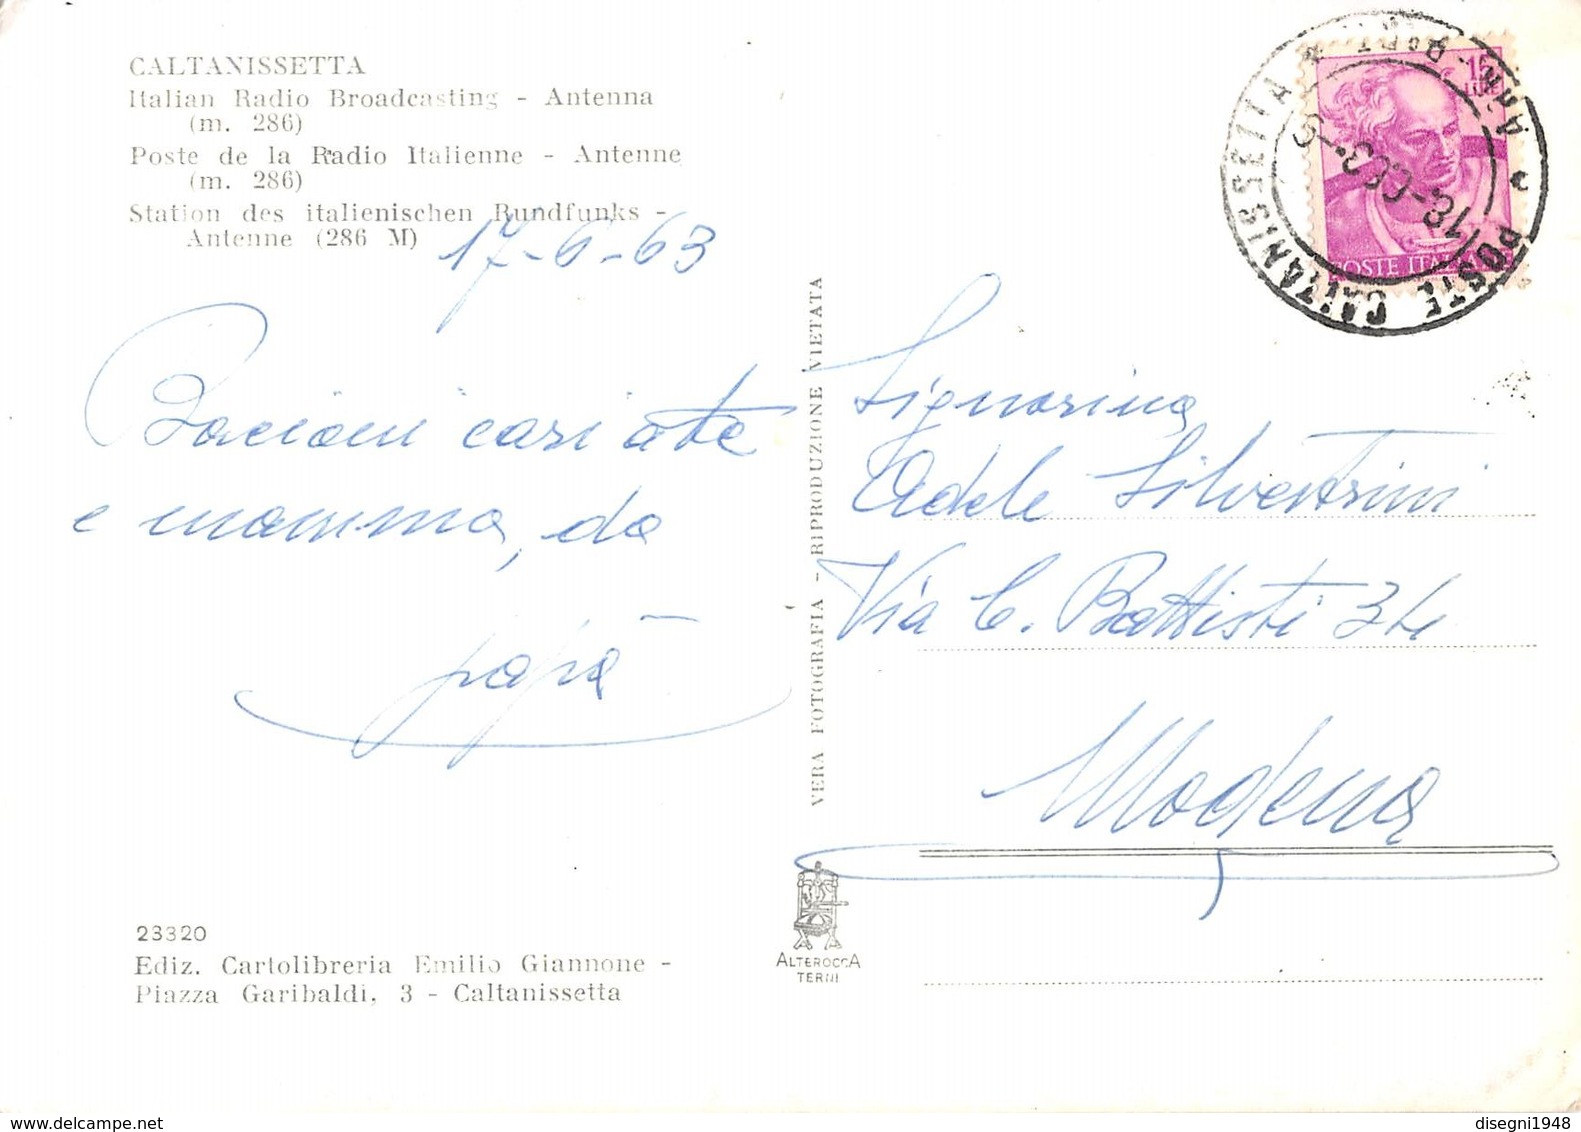 CALTANISSETTA
Italian Radio Broadcasting - Antenna
(m. 286)
Poste de la Radio Italienne - Antenne
(m. 286)
Station des italienischen Rundfunks -
Antenne (286 M)
17-6-63
Bacioni cari a te
e mamma, da
papà
23320
Ediz. Cartolibreria Emilio Giannone -
Piazza Garibaldi, 3 - Caltanissetta
VERA FOTOGRAFIA - RIPRODUZIONE VIETATA
ALTEROCCA
TERNI
15
LIRE
POSTE ITALIANE
POSTE CALTANISSETTA
18-6-63
Signorina
Adele Silvestrini
Via C. Battisti 34
Modena
disegni1948